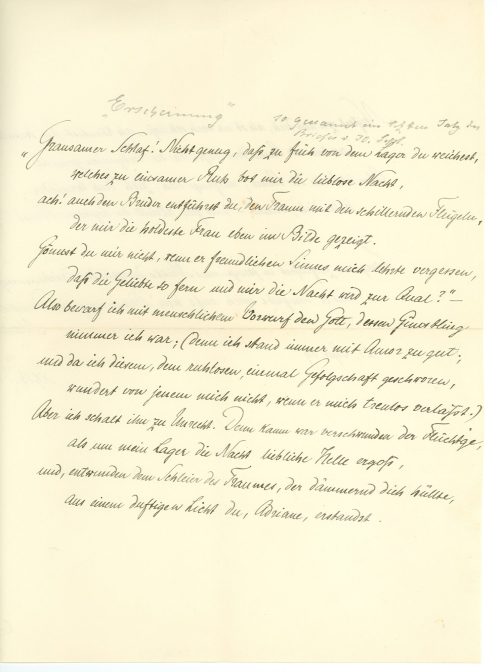 „Erscheinung"
so genannt im letzten Satz des
Briefes v. 30. Sept.
„Grausamer Schlaf! Nicht genug, daß zu früh von dem Lager du weichest,
welches zu einsamer Ruh bot mir die lieblose Nacht,
ach! auch den Bruder entführst du, den Traum mit den schillernden Flügeln,
der mir die holdeste Frau eben im Bilde gezeigt.
Gönnst du mir nicht, wenn er freundlichen Sinnes mich lehrte vergessen,
daß die Geliebte so fern und mir die Nacht wird zur Qual?" –
Also bewarf ich mit menschlichem Vorwurf den Gott, dessen Günstling
nimmer ich war; (denn ich stand immer mit Amor zu gut;
und da ich diesem, dem ruhlosen, einmal Gefolgschaft geschworen,
wundert von jenem mich nicht, wenn er mich treulos verläßt.)
Aber ich schalt ihn zu Unrecht. Denn kaum war verschwunden der Flüchtge,
als um mein Lager die Nacht liebliche Helle ergoß,
und, entwunden dem Schleier des Traumes, der dämmernd dich hüllte,
aus einem duftigen Licht du, Adriane, erstandst.